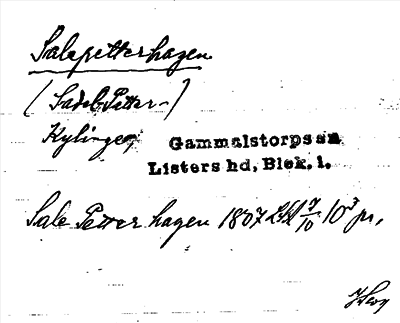 Salepetterhagen
(Sadel-Petter-)
Kylinge,
Gammalstorps sn
Listers hd, Blek. l.
Sale Petter hagen 1807 LSA 7/10 10³ pr.